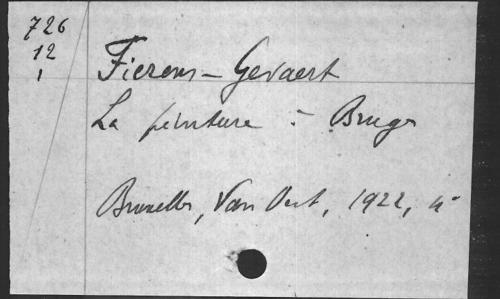 726
12
1
Fierens-Gevaert
La peinture à Bruges
Bruxelles, Van Oest, 1922, 4°